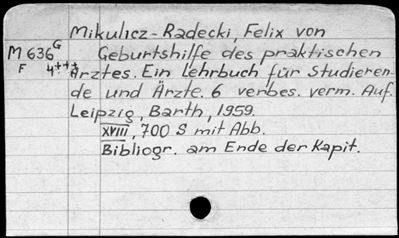 Mikulicz-Radecki, Felix von
M 636 G Geburtshilfe des praktischen
F 4+++ Arztes. Ein Lehrbuch für Studieren-
de und Ärzte. 6 verbes. verm. Auf.
Leipzig, Barth, 1959.
XVIII, 700 S mit Abb.
Bibliogr. am Ende der Kapit.